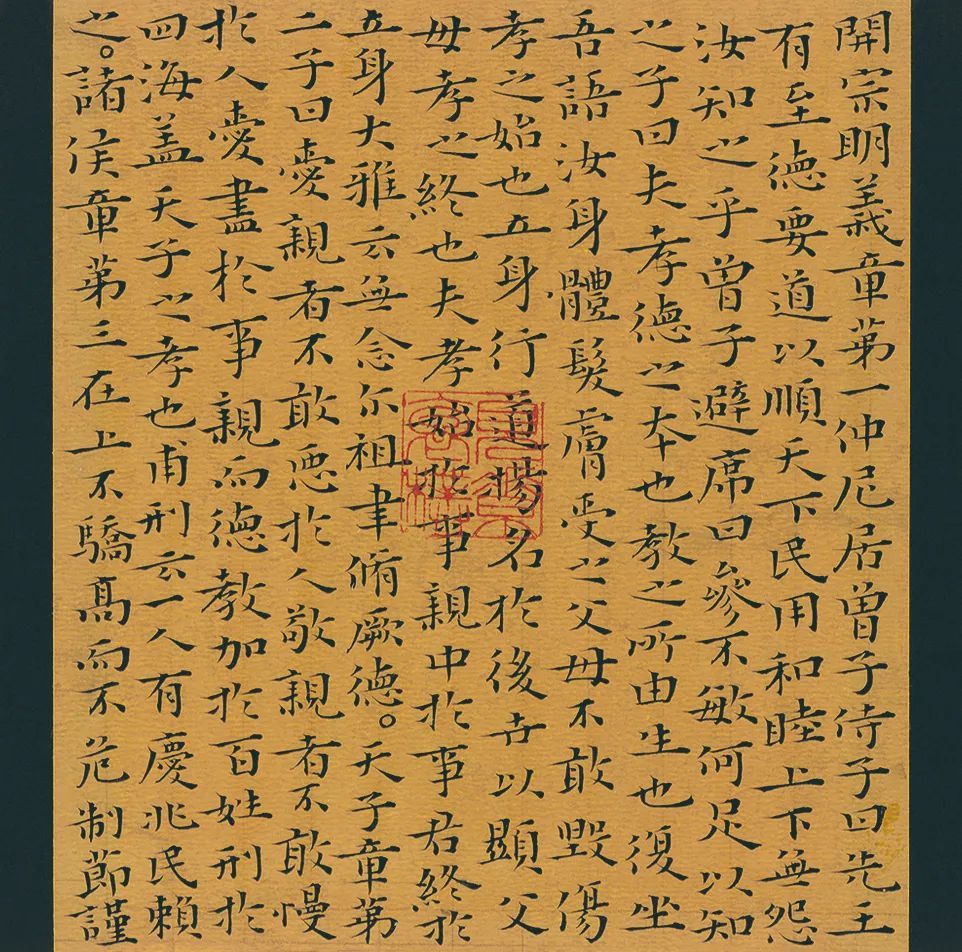 開宗明義章第一仲尼居曾子侍子曰先王
有至德要道以順天下民用和睦上下無怨
汝知之乎曾子避席曰參不敏何足以知
之子曰夫孝德之本也教之所由生也復坐
吾語汝身體髮膚受之父母不敢毀傷
孝之始也立身行道揚名於後世以顯父
母孝之終也夫孝始於事親中於事君終於
立身大雅云無念尔祖聿脩厥德。天子章第
二子曰愛親者不敢惡於人敬親者不敢慢
於人愛盡於事親而德教加於百姓刑於
四海盖天子之孝也甫刑云一人有慶兆民賴
之。諸侯章第三在上不驕高而不危制節謹